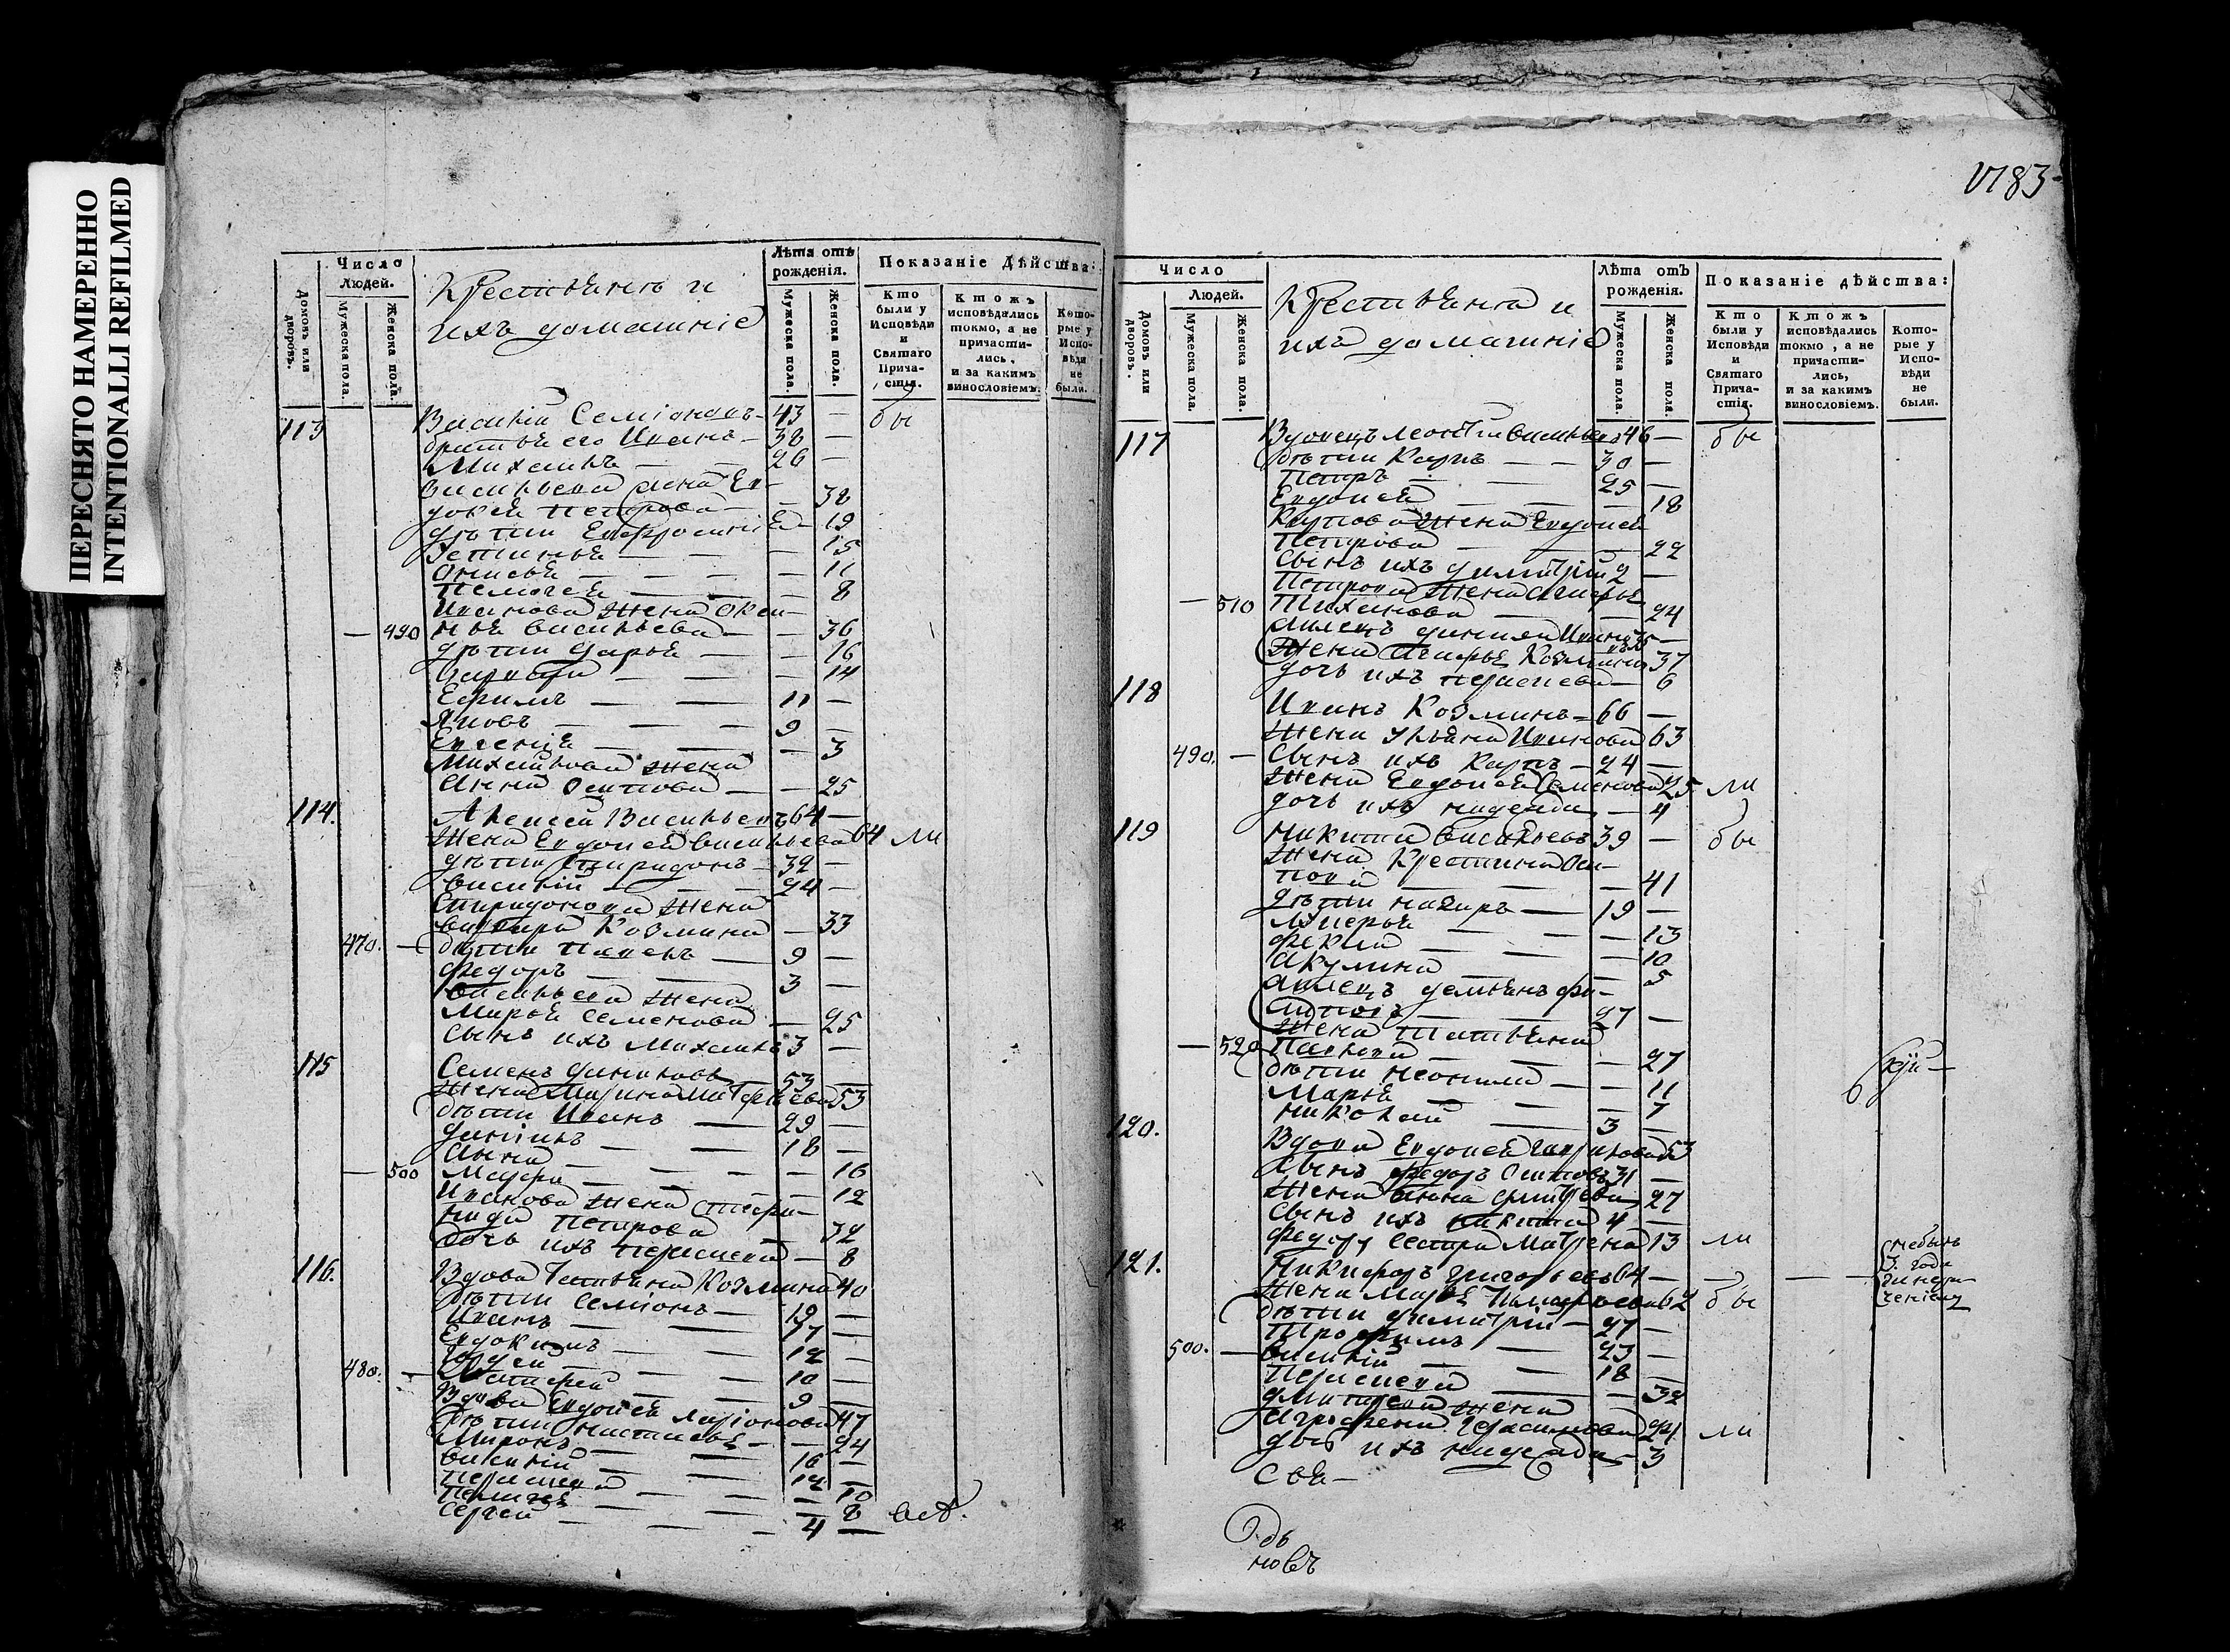 ПЕРЕСНЯТО НАМЕРЕННО
INTENTIONALLI REFILMED
Домовъ или дворовъ.
Число Людей.
Мужеска пола.
Женска пола.
Крестьянъ и
ихъ домашніе
Лѣта отъ рожденія.
Мужеска пола.
Женска пола.
Показаніе Дѣйства:
Кто были у Исповѣди и Святаго Прича-стія.
Ктожъ исповѣдались токмо, а не причасти-лись, и за какимъ винословіемъ.
Кото-рые у Испо-вѣди не были.
113 Василій Семіоновъ 43 — бы
братья его Иванъ — 38 —
Михаилъ — — 26 —
Васильева жена Ев-
докея Петрова — — 38
дѣти Евфросиніе — 19
Устинья — — — 15
Анисья — — — 11
Пелагея — — — 8
Иванова жена Окси-
— 490 нья Васильева — — 36
дѣти Дарья — — 16
— — — 14
Ефимъ — — 11 —
Яковъ — — — 9 —
Евгенія — — — 3
Михайлова жена
Анна Осипова — — 25
114. Алексей Васильевъ 64 —
жена Евдокея Васильева 64 ли
дѣти Спиридонъ — 32 —
Василій — — 24 —
Спиридонова жена
Варвара Козмина — 33
470. — дѣти Павелъ — 9 —
Федоръ — — 3 —
Васильева жена
Марья Семенова — 25
сынъ ихъ Михаилъ 3 —
115 Семенъ Даниловъ — 53 —
жена Марина Матфѣева 53
дѣти Иванъ — 29 —
Даніилъ — — 18 —
Анна — — — 16
— 500 Мавра — — — 12
Иванова жена Степа-
нида Петрова — 32
дочь ихъ Парасковія — 8
116. Вдова Татьяна Козмина 40
дѣти Семіонъ — 19 —
Иванъ — — 17 —
Евдокимъ — — 12 —
Гордей — — 10 —
480. — — — 9 —
Вдова Евдокея Ларіонова 47
дѣти Настасья — — 24
Миронъ — — 16 —
Василій — — 12 —
Парасковія — — 10
Пелагея — — — 8
Сергей — — — 4 —
183
Домовъ или дворовъ.
Число
Людей.
Мужеска пола.
Женска пола.
Крестьяна и
ихъ домашніе
Лѣта отъ рожденія.
Мужеска пола.
Женска пола.
Показаніе дѣйства:
Кто были у Исповѣди и Святаго Прича-стія.
Ктожъ исповѣдались токмо, а не причасти-лись, и за какимъ винословіемъ.
Кото-рые у Испо-вѣди не были.
117 Вдовецъ Леонтій Васильевъ 46 — бы
дѣти Карпъ — — 30 —
Петръ — — 25 —
Евдокея — — — 18
Карпова жена Евдокея
Петрова — — — 22
сынъ ихъ Димитрій 2 —
Петрова жена Агафья
— 510 Тиханова — — 24
Данила Ивановъ 35 —
жена Агафья Козмина 37
дочь ихъ Парасковія — 6
118 Иванъ Козминъ — 66 —
жена Ульяна Иванова 63
490. — сынъ ихъ Карпъ — 24 —
жена Евдокея Семенова 25 ли
дочь ихъ Надежда — 4
119 Никита Васильевъ 39 — бы
жена Крестина Оси-
пова — — 41
дѣти Назаръ — 19 —
Лукерья — — — 13
Фекла — — — 10
Акулина — — 5
Демьянъ Фи-
липовъ — — 27 —
жена Татьяна
— 520 Павлова — — 27
дѣти Неонила — — 11
Марья — — — 7
Николай — — 3 —
120. Вдова Евдокея Гаврилова 53
сынъ Федоръ Осиповъ 31 —
жена Анна Дмитрева 27
сынъ ихъ Никита 4 —
Федору сестра Матрена 13 ли
121. Никифоръ Григорьевъ 64 — — — небылъ
3. года
жена Марья 62 бы
дѣти Димитрій — 27 —
Трофимъ — — 23 —
500. — Василій — — 18 —
Парасковія — — 32
Дмитрева жена
Аграфена Герасимова 24 ли
дочь ихъ Надежда — 3